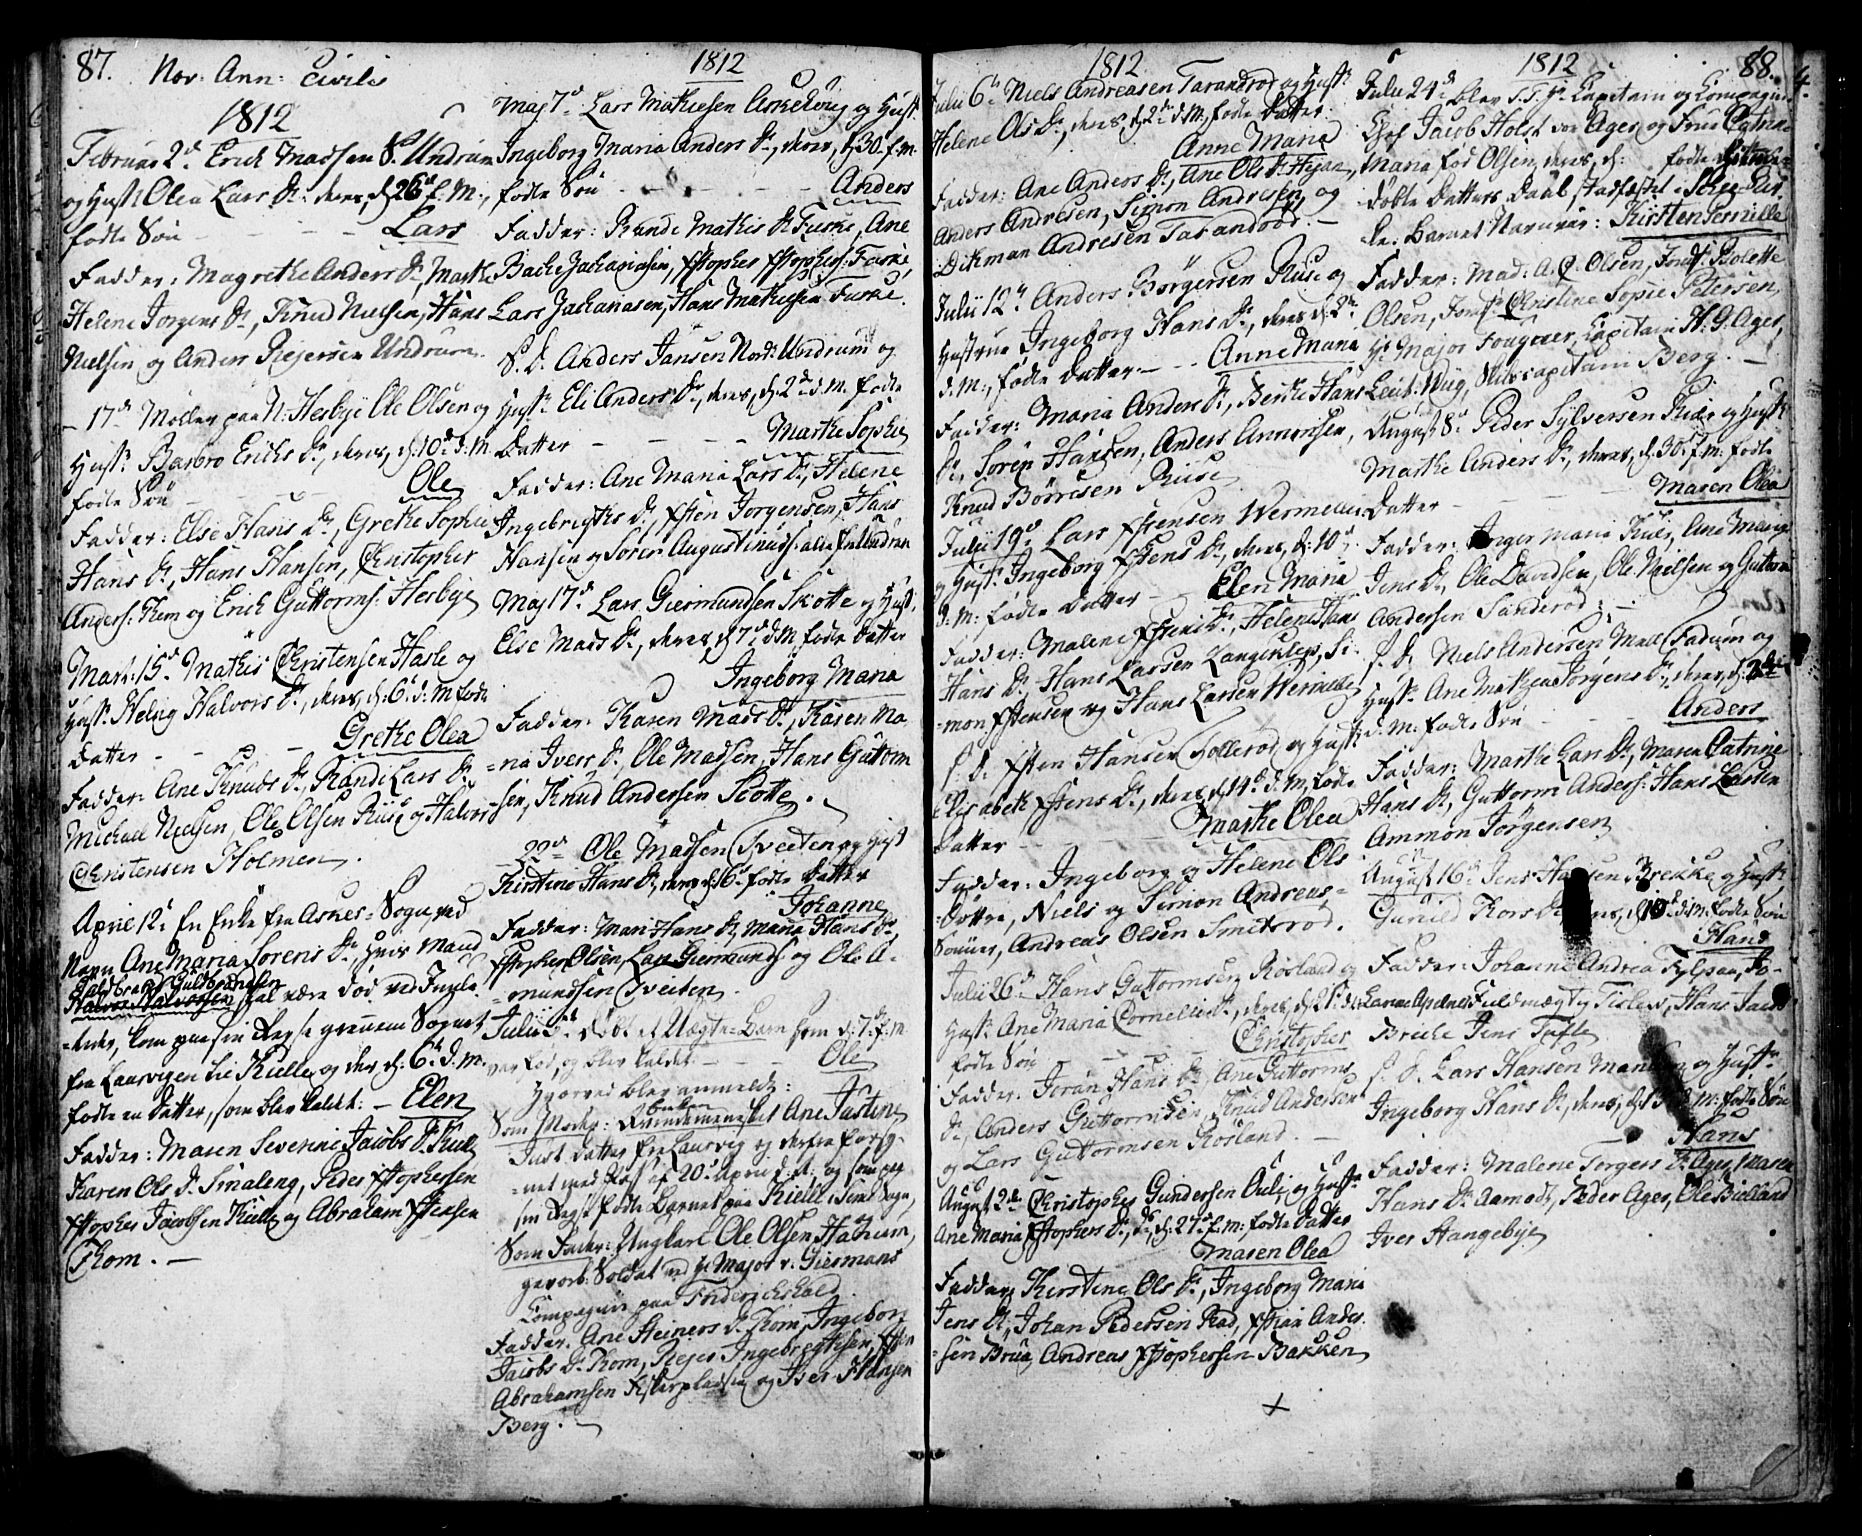 87. Nov: Ann: Civilis
1812
Februar 2d Erich Madsen S. Undrum
og Hustr Olea Lars Dr: deres, d: 26d f. M.,
fødte Søn - - - Lars
Fadder: Magrethe Anders Dr, Marthe
Helene Jørgens Dr, Knud Nielsen, Hans
Nielsen og Anders Rejersen Undrum.
- 17d Møller paa N: Hesbye Ole Olsen og
Hustr. Barbro Erichs Dr, deres, d: 10d d. M.
fødte Søn - - - Ole
Fadder: Else Hans Dr, Grethe Sophie
Hans Dr, Hans Hansen, Christopher
Anders: Rem og Erich Guttorms: Hesbye
Mart: 15d Mathis Christensen Hasle og
Hust. Helvig Halvors Dr, deres, d: 6d d: M fødte
Datter - - - Grethe Olea
Fadder: Ane Knuds Dr, Rande Lars Dr
Michael Nielsen, Ole Olsen Ruse og Halvor
Christensen Holmen.
April 12d En Enke fra Asnes-Sogn, ved
Navn Ane Maria Sørens Dr, hvis Mand
Guldbrand Guldbrandsen
Halvor Halvorsen skal være død ved Juule
-tider, kom paa sin Reyse gjennem Sognet
fra Laurvigen til Kielle, og der d: 6d d. M.
fødte en Datter, som blev kaldet: - Elen
Fadder: Maren Severine Jacobs Dr Kielle
Karen Ols Dr Smaleng, Peder Xstophersen
Xstopher Jacobsen Kielle og Abraham Xstensen
Rom. -
1812
Maj 7d Lars Mathiesen Askehoug og Hust.
Ingeborg Maria Anders Dr, deres, d: 30. f. M.
fødte Søn - - - Anders
Fadder: Rande Mathis Dr Fuske, Ane
Bache Zachariasen, Xstopher Xstophers: Fuske,
Lars Zachariasen, Hans Mathiesen Fuske.
S. D. Anders Jansen Nord: Undrum og
Hustr. Eli Anders Dr, deres, d: 2d d. M. fødte
Datter - - - Marthe Sophie
Fadder: Ane Maria Lars Dr, Helene
Ingebrigths Dr, Xsten Jørgensen, Hans
Hansen og Søren Augustinuss: alle fra Undrum
Maj 17d Lars Giermundsen Skotte og Hust.
Else Mads Dr, deres d 7d d. M. fødte Datter
Ingeborg Maria
Fadder: Karen Mads Dr, Karen Ma
=ria Ivers Dr Ole Madsen, Hans Guttorm
=sen, Knud Andersen Scotte. -
22d Ole Madsen Tveiten og Hust
Kirstine Hans Dr, deres d: 16d fødte Datter
Johanne
Fadder: Mari Hans Dr, Maria Hans Dr,
Xstopher Olsen, Lars Giermunds: og Ole A-
=mundsen Tveiten.
Julii 5d døbt et Uægte-Barn som d: 7d f. M.
var fød, og blev kaldet - - Ole
Hvorved blev anmeldt:
Som Moder: Qvindemennesket Ane Justine
Just Datter fra Laurvig og derfra forsy-
=net med Pass af 20d April d. A. og som paa
sin Reyse fødte Barnet paa Kielle i Sems Sogn,
Som Fader: Ungkarl Ole Olsen Hatrem,
gevorb. Soldat ved Hr Major v. Giermans
Compagnie paa Friderichshald.
Fadder: Ane Steiners Dr Rom, Ingeborg
Jacobs Dr Rom, Rejer Ingebregthsen, Xsten
Abrahamsen og Iver Hansen
Berg. -
1812
Julii 6d Niels Andreasen Tarandrød og Hustr
Helene Ols Dr, deres, d: 2d d: M. fødte Datter
Anne Maria
Fadder: Ane Anders Dr, Ane Ols Dr Hejan,
Anders Andresen, Simon Andresen, og
Ditman Andresen Tarandrød. -
Julii 12d Anders Børgersen Ruse og
Hustrue Ingeborg Hans Dr, deres d: 2d
d. M., fødte Datter - - - Anne Maria
Fadder: Maria Anders Dr, Berthe Hans
Dr, Søren Hansen, Anders Ammonsen,
Knud Børresen Ruse
Julii 19d Lars Xstensen Wermelie
og Hustr. Ingeborg Xstens Dr, deres, d: 10d
d: M: fødte Datter - - Elen Maria
Fadder: Malene Xstens Dr, Helene Hans
Hans Dr, Hans Larsen , Si-
=mon Xstensen og Hans Larsen Wermelie
S. D. Xsten Hansen Sollerød, og Hustr.
Elisabeth Xstens Dr, deres d: 14d d. M. fødte
Datter - - - Marthe Olea
Fadder: Ingeborg og Helene Ols
Døttre, Niels og Simon Andreas=
Sønner, Andreas Olsen Smitsrød.
Julii 26d Hans Guttormsen Røsland og
Hustr. Ane Maria Cornelii Dr, deres, d: 21d d. M.
fødte Søn - - - Christopher
Fadder: Joran Hans Dr, Ane Guttorms
Dr, Anders Guttormsen, Knud Andersen
og Lars Guttormsen Røsland. -
August 2d Christopher Gundersen Aule, og Hustr
Ane Maria Xstophers Dr, Dr, d: 27d f. M: fødte Datter
Maren Olea
Fadder: Kirstine Ols Dr, Ingeborg Maria
Jens Dr, Johan Pedersen Rad, Xstian Anders
=sen Brue, Andreas Xstophersen Bakken
+
1812 88.
Julii 24d blev S. T. Hr Capitain og Compagnie
Chef Jacob Holst von Ager og Frue Catrine
Maria fød Olsen, deres, d: fødte
døbte Datters Daab stadfæstet i
Barnet Navn var: Kirsten Pernille
Fadder: Mad: A. C. Olsen, Jomfr. Bolette
Olsen, Jomfr. Christine Sopie Petersen,
Hr Major Fougner, Capitain H. G. Ager,
Leut: Wiig, Skibscapitain Berg. -
August 8d Peder Sylversen Rise og Hustr
Marthe Anders Dr, deres, d: 30d f. M. fødte
Datter - - - Maren Olea
Fadder: Inger Maria Kiær, Ane Marie
Jens Dr, Ole Davidsen, Ole Nielsen og Guttorm
Andersen Sanderød: -
S. D. Niels Andersen Mell: Sadum og
Hustr Ane Mathea Jørgens Dr, deres, d: 2d
d: M. fødte Søn - - - Anders
Fadder: Marthe Lars Dr, Maren Catrine
Hans Dr, Guttorm Anders: Hans Larsen
Ammon Jørgensen
August 16d Jens Hansen Brekke og Hustr,
Gunild Thors Dr, deres, d: 10d d: M: fødte Søn
Hans
Fadder: Johanne Andrea Fylpaa,
Fuldmægtig Tislew, Hans Jacob
Breche Jens Tufte
S. D. Lars Hansen og Hustr
Ingeborg Hans Dr, deres, d: M: fødte Søn
Hans
Fadder: Malene Torgers Dr Ager, Maren
Hans Dr Aamodt, Peder Ager, Ole Bielland
Iver Hangebye